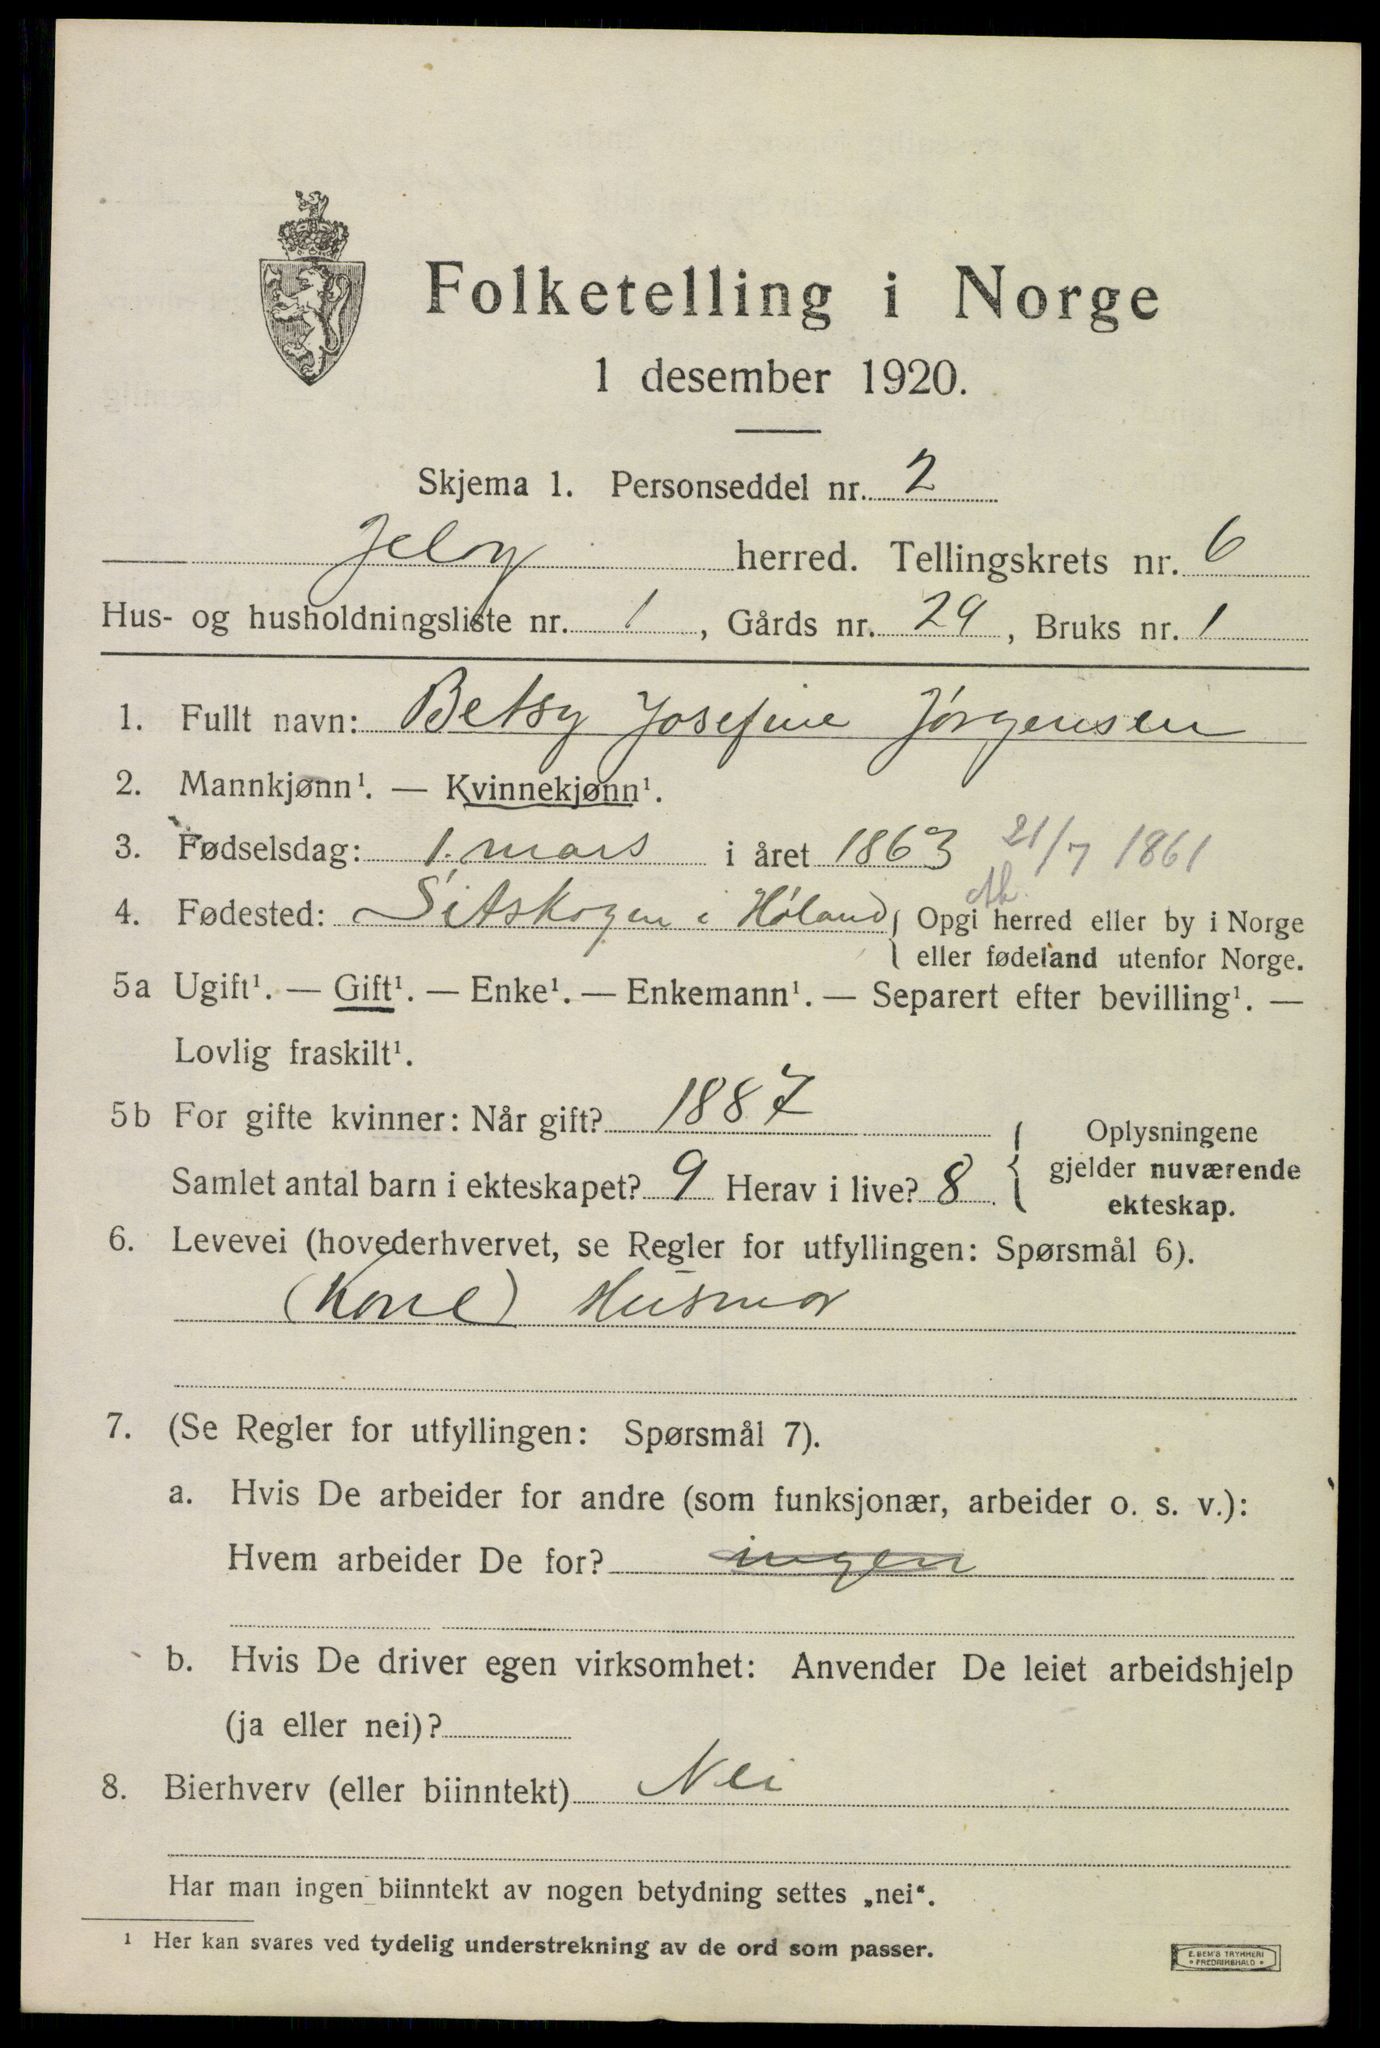 Folketelling i Norge
1 desember 1920.
Skjema 1. Personseddel nr. 2
Jeløy herred. Tellingskrets nr. 6
Hus- og husholdningsliste nr. 1, Gårds nr. 29, Bruks nr. 1
1. Fullt navn: Betsy Josefine Jørgensen
2. Mannkjønn¹. — Kvinnekjønn¹.
3. Fødselsdag: 1. mars i året 1863 21/7 1861
4. Fødested: Sitskogen i Høland Opgi herred eller by i Norge
eller fødeland utenfor Norge.
5a Ugift¹. — Gift¹. — Enke¹. — Enkemann¹. — Separert efter bevilling¹. —
Lovlig fraskilt¹.
5b For gifte kvinner: Når gift? 1887
Samlet antal barn i ekteskapet? 9 Herav i live? 8.
Oplysningene
gjelder nuværende
ekteskap.
6. Levevei (hovederhvervet, se Regler for utfyllingen: Spørsmål 6).
(Kone) Husmor
7. (Se Regler for utfyllingen: Spørsmål 7).
a. Hvis De arbeider for andre (som funksjonær, arbeider o. s. v.):
Hvem arbeider De for? ingen
b. Hvis De driver egen virksomhet: Anvender De leiet arbeidshjelp
(ja eller nei)?
8. Bierhverv (eller biinntekt) Nei
Har man ingen biinntekt av nogen betydning settes „nei“.
¹ Her kan svares ved tydelig understrekning av de ord som passer.
E. SEM'S TRYKKERI
• FREDRIKSHALD •